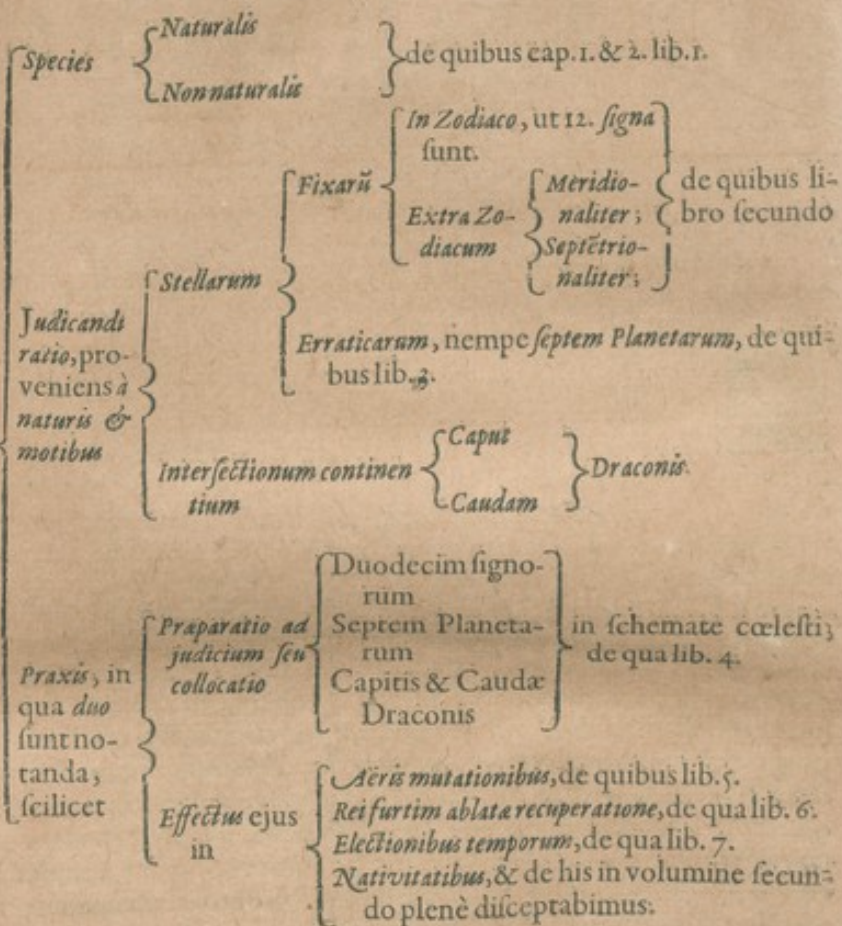 Species
Naturalis
Nonnaturalis
de quibus cap. 1. & 2. lib. 1.
Judicandi
ratio, pro-
veniens à
naturis &
motibus
Stellarum
Fixarū
In Zodiaco, ut 12. signa
sunt.
Extra Zo-
diacum
Meridio-
naliter;
Septētrio-
naliter;
de quibus li-
bro secundo
Erraticarum, nempe septem Planetarum, de qui-
bus lib. 3.
Intersectionum continen
tium
Caput
Caudam
Draconis.
Praxis, in
qua duo
sunt no-
tanda,
scilicet
Præparatio ad
judicium seu
collocatio
Duodecim signo-
rum
Septem Planeta-
rum
Capitis & Caudæ
Draconis
in schemate cœlesti;
de qua lib. 4.
Effectus ejus
in
Aëris mutationibus, de quibus lib. 5.
Rei furtim ablatæ recuperatione, de qua lib. 6.
Electionibus temporum, de qua lib. 7.
Nativitatibus, & de his in volumine secun-
do plenè disceptabimus.